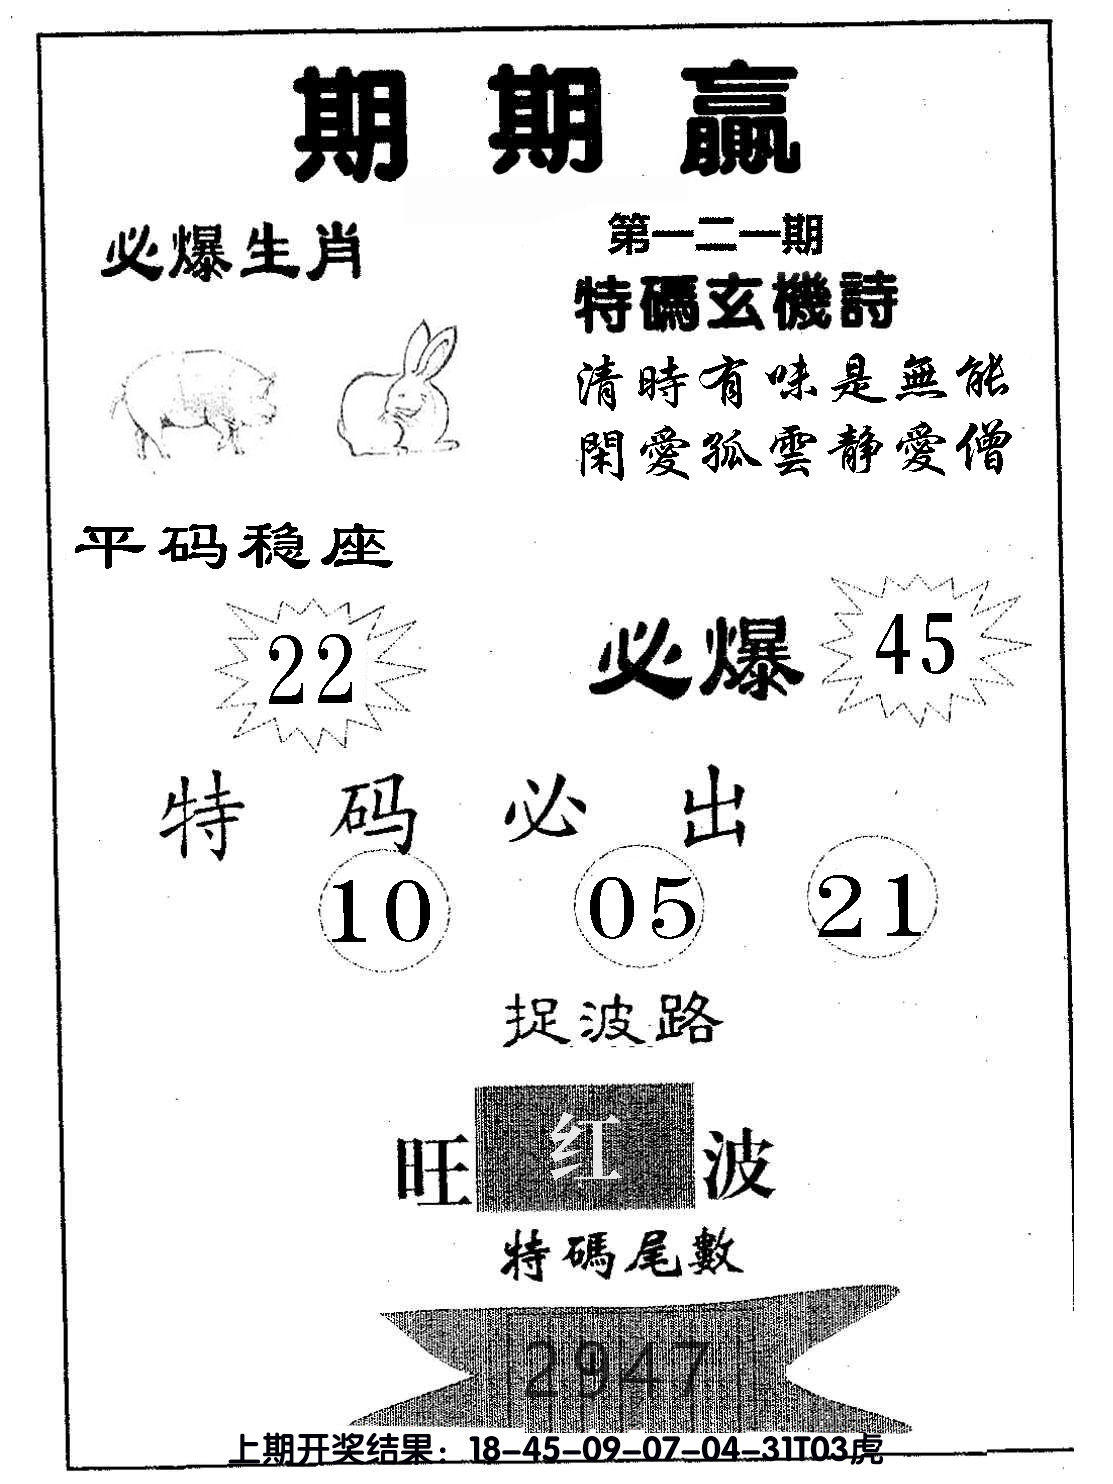 期期赢
必爆生肖
第一二一期
特碼玄機詩
清時有味是無能
閑愛孤雲静愛僧
平码稳座
22
必爆 45
特码必出
10 05 21
捉波路
旺 红 波
特碼尾數
2947
上期开奖结果：18-45-09-07-04-31T03虎